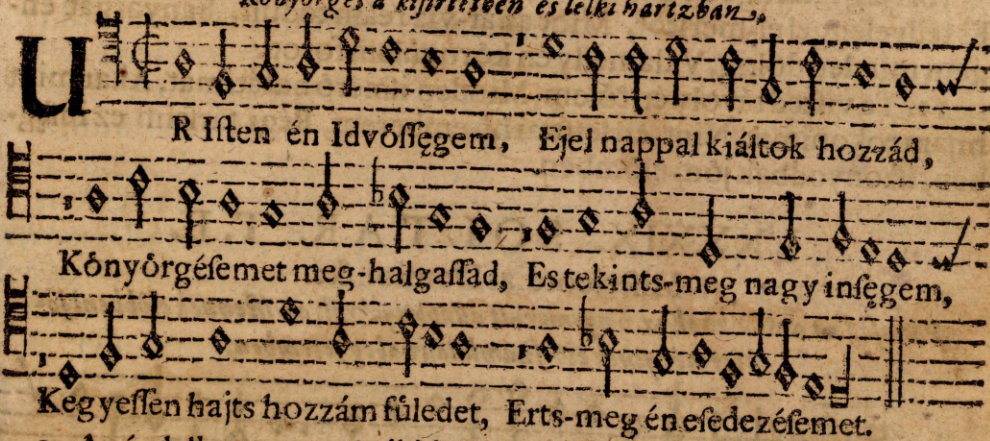 Könyörgés a kisirtetben es lelki hartzban.
UR Iſten én Idvőſſęgem, Ejel nappal kiáltok hozzád,
Kőnyőrgéſemet meg-halgaſſad, Es tekints-meg nagy inſęgem,
Kegyeſſen hajts hozzám fűledet, Erts-meg én eſedezéſemet.